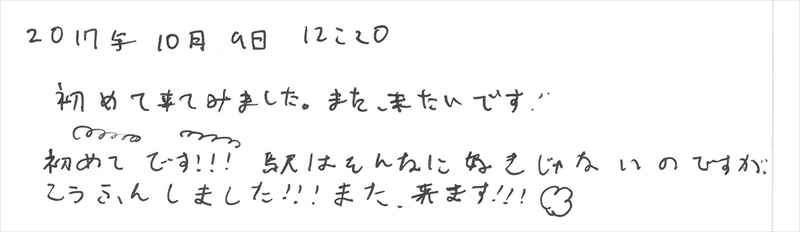 2017年 10月 9日 12:20
初めて来てみました。また、来たいです!!
初めてです!!! 駅はそんなに好きじゃないのですが、
こうふんしました!!! また、来ます!!!